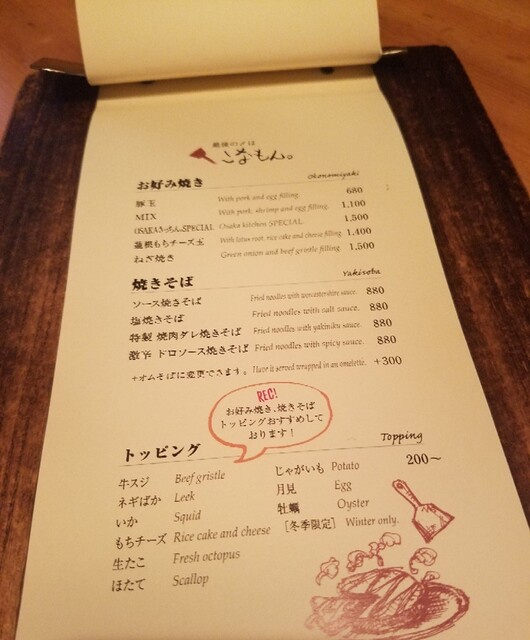 最後の〆は
こなもん。
お好み焼き Okonomiyaki
豚玉 With pork and egg filling. 680
MIX With pork, shrimp and egg filling. 1,100
OSAKAきっちんSPECIAL Osaka kitchen SPECIAL. 1,500
蓮根もちチーズ玉 With lotus root, rice cake and cheese filling 1,400
ねぎ焼き Green onion and beef gristle filling 1,500
焼きそば Yakisoba
ソース焼きそば Fried noodles with worcestershire sauce. 880
塩焼きそば Fried noodles with salt sauce. 880
特製 焼肉ダレ焼きそば Fried noodles with yakiniku sauce. 880
激辛 ドロソース焼きそば Fried noodles with spicy sauce. 880
+オムそばに変更できます。 Have it served wrapped in an omelette. +300
REC!
お好み焼き、焼きそば
トッピングおすすめして
おります！
トッピング Topping
200〜
牛スジ Beef gristle
ネギばか Leek
いか Squid
もちチーズ Rice cake and cheese
生たこ Fresh octopus
ほたて Scallop
じゃがいも Potato
月見 Egg
牡蠣 Oyster
［冬季限定］ Winter only.